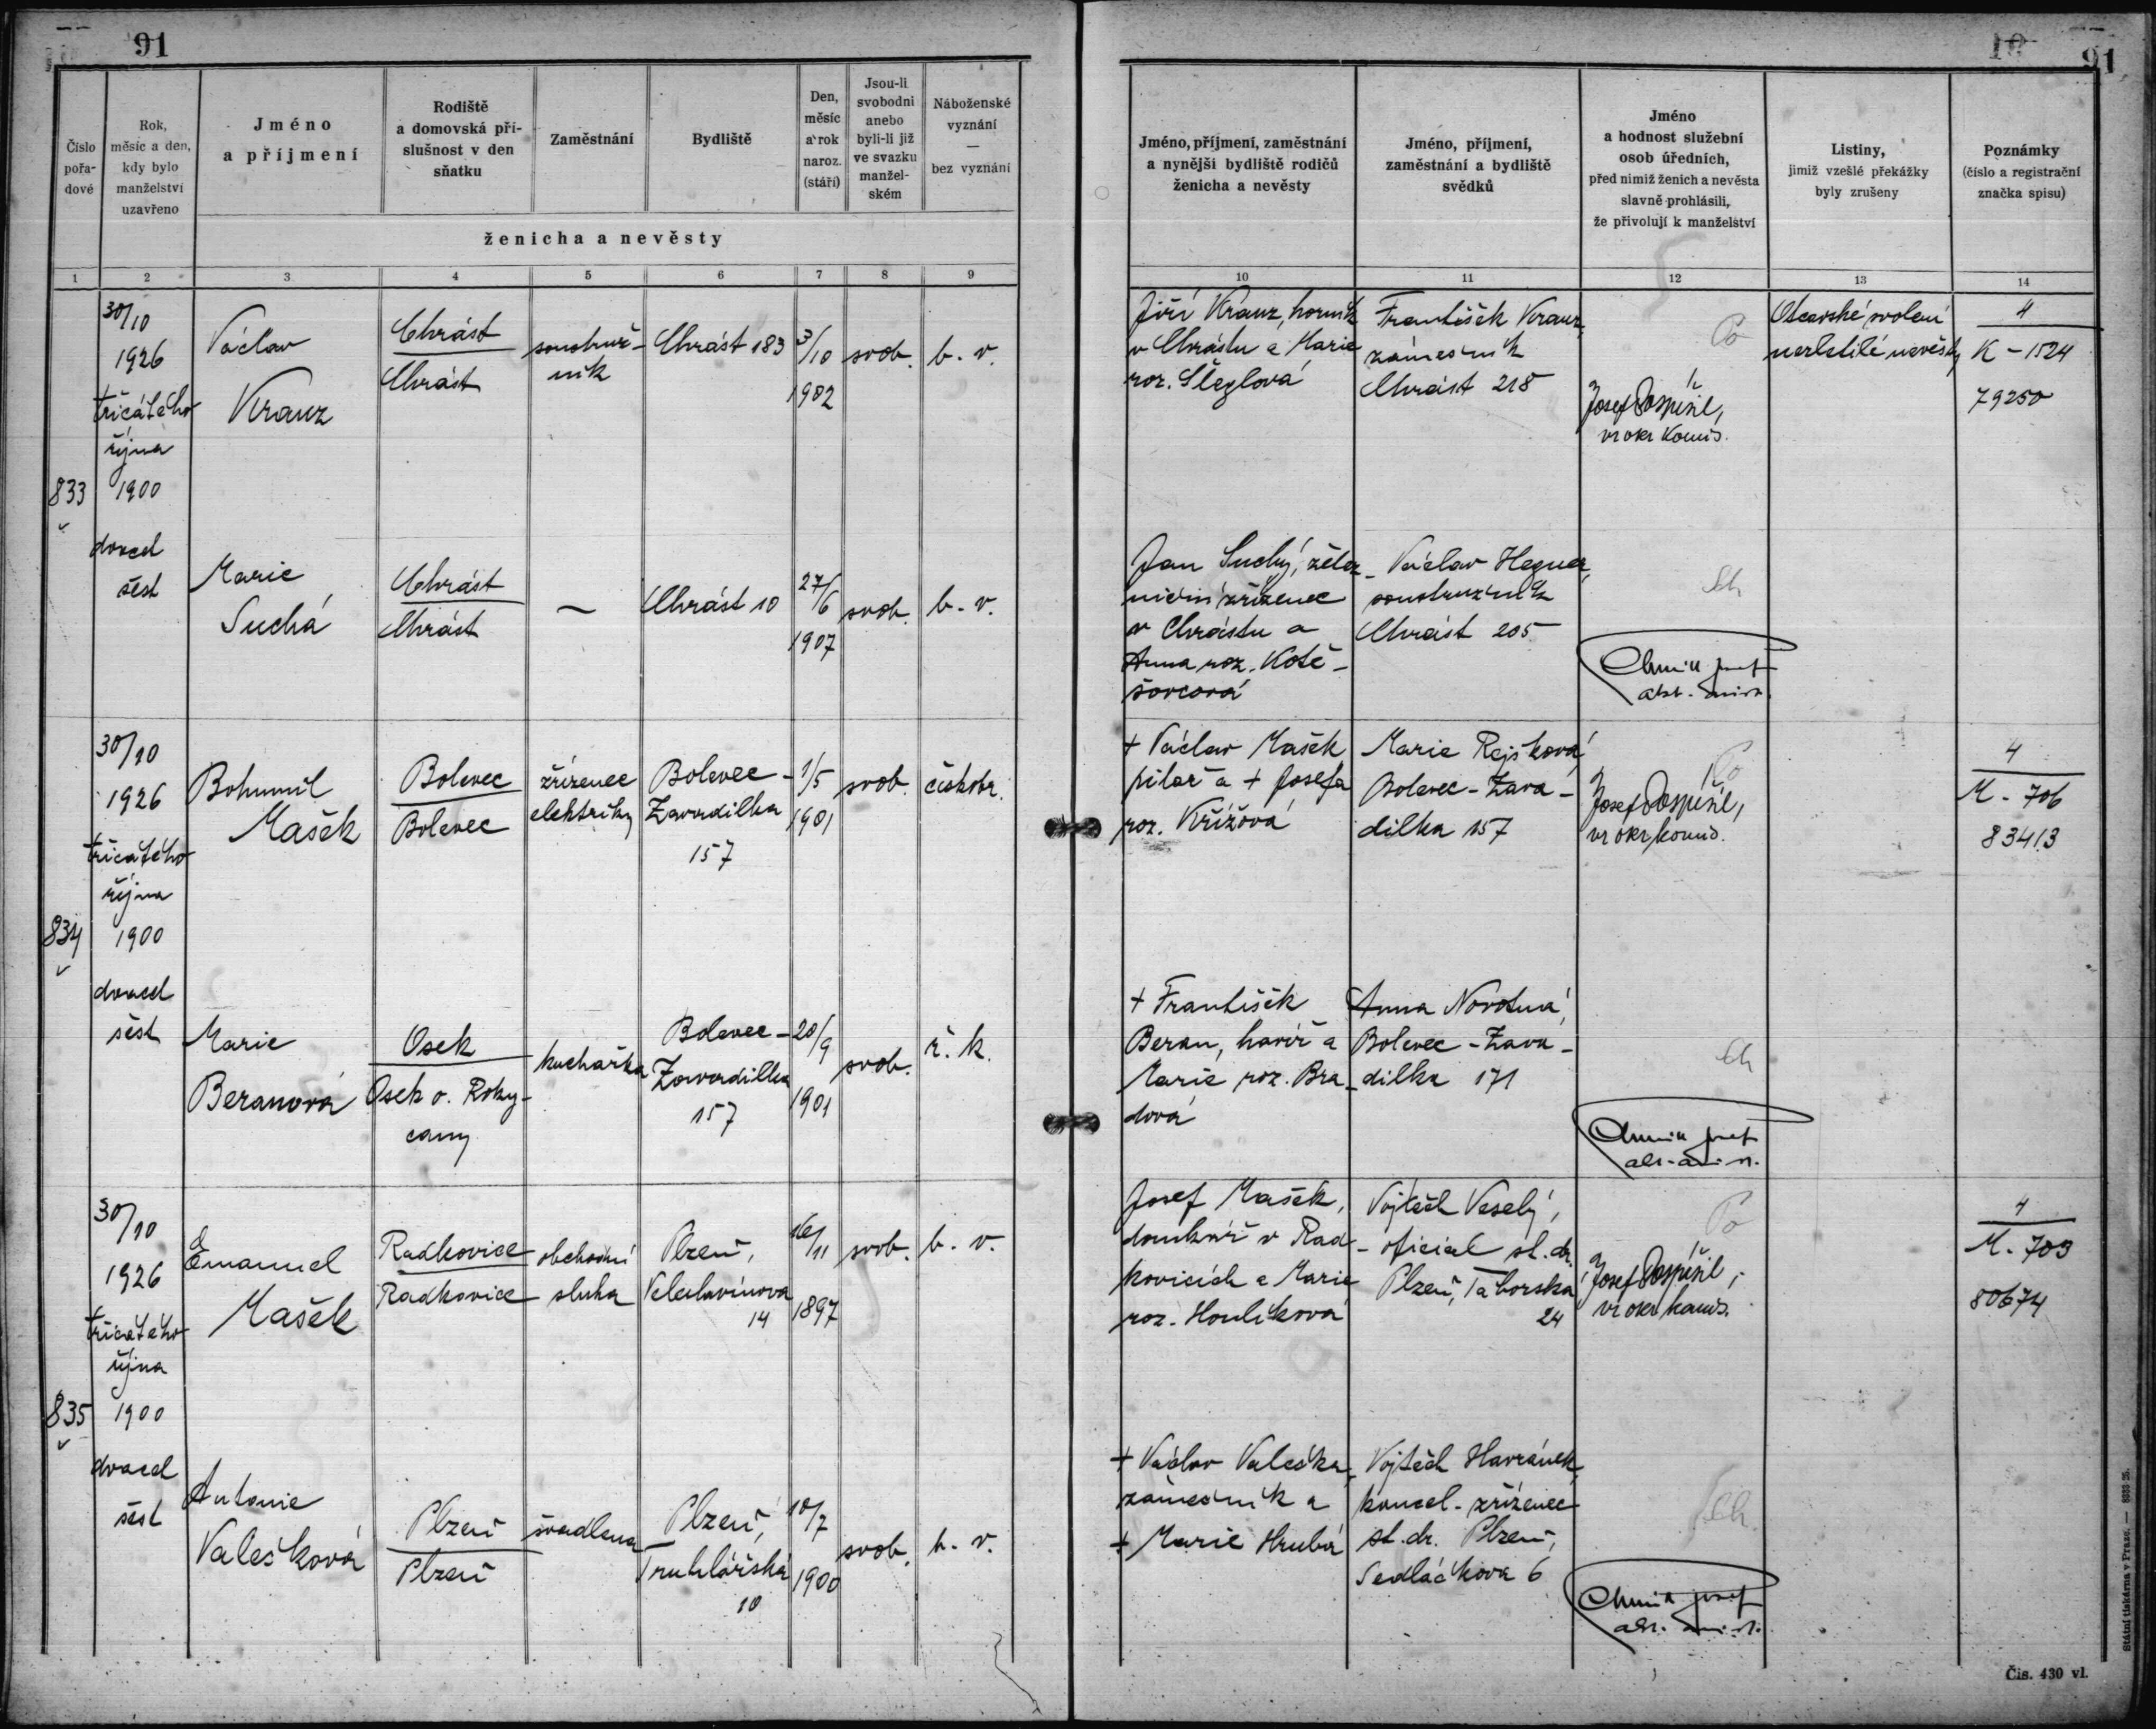 91
Číslo pořa-dové
Rok, měsíc a den, kdy bylo manželství uzavřeno
Jméno a příjmení
Rodiště a domovská pří-slušnost v den sňatku
Zaměstnání
Bydliště
Den, měsíc a rok naroz. (stáří)
Jsou-li svobodni anebo byli-li již ve svazku manžel-ském
Náboženské vyznání — bez vyznání
ženicha a nevěsty
1 2 3 4 5 6 7 8 9
833
30/10
1926
třicátého
října
1900
dvacet
šest
Václav
Kranz
Chrást
Chrást
soustruž-
ník
Chrást 183
3/10
1902
svob.
b. v.
Marie
Suchá
Chrást
Chrást
—
Chrást 10
27/6
1907
svob.
b. v.
834
30/10
1926
třicátého
října
1900
dvacet
šest
Bohumil
Mašek
Bolevec
Bolevec
zřízenec
elektriky
Bolevec -
Zavadilka
157
1/5
1901
svob.
českobr.
Marie
Beranová
Osek
Osek o. Roky-
cany
kuchařka
Bolevec -
Zavadilka
157
20/9
1901
svob.
ř. k.
835
30/10
1926
třicátého
října
1900
dvacet
šest
Emanuel
Mašek
Radkovice
Radkovice
obchodní
sluha
Plzeň,
Veleslavínova
14
16/11
1897
svob.
b. v.
Antonie
Valešková
Plzeň
Plzeň
švadlena
Plzeň,
Truhlářská
10
10/7
1900
svob.
b. v.
91
Jméno, příjmení, zaměstnání a nynější bydliště rodičů ženicha a nevěsty
Jméno, příjmení, zaměstnání a bydliště svědků
Jméno a hodnost služební osob úředních, před nimiž ženich a nevěsta slavně prohlásili, že přivolují k manželství
Listiny, jimiž vzešlé překážky byly zrušeny
Poznámky (číslo a registrační značka spisu)
10 11 12 13 14
Jiří Kranz, horník
v Chrástu a Marie
roz. Šleglová
František Kranz,
zámečník
Chrást 218
Josef Pospíšil,
vr. okr. komis.
Otcovské svolení
nezletilé nevěsty
4
K - 1524
79250
Jan Suchý, želez-
niční zřízenec
v Chrástu a
Anna roz. Kotě-
šovcová
Václav Hegner,
soustružník
Chrást 205
+ Václav Mašek
pilař a + Josefa
roz. Křížová
Marie Rejšková,
Bolevec - Zava-
dilka 157
Josef Pospíšil,
vr. okr. komis.
4
M - 706
83413
+ František
Beran, havíř a
Marie roz. Bra-
dová
Anna Novotná,
Bolevec - Zava-
dilka 171
Josef Mašek,
domkář v Rad-
kovicích a Marie
roz. Houšková
Vojtěch Veselý,
oficial st. dr.
Plzeň, Táborská
24
Josef Pospíšil,
vr. okr. komis.
4
M. 703
80674
+ Václav Valeška,
zámečník a
+ Marie Hrubá
Vojtěch Havránek,
kancel. zřízenec
st. dr. Plzeň,
Sedláčkova 6
Státní tiskárna v Praze. — 8333-25.
Čís. 430 vl.